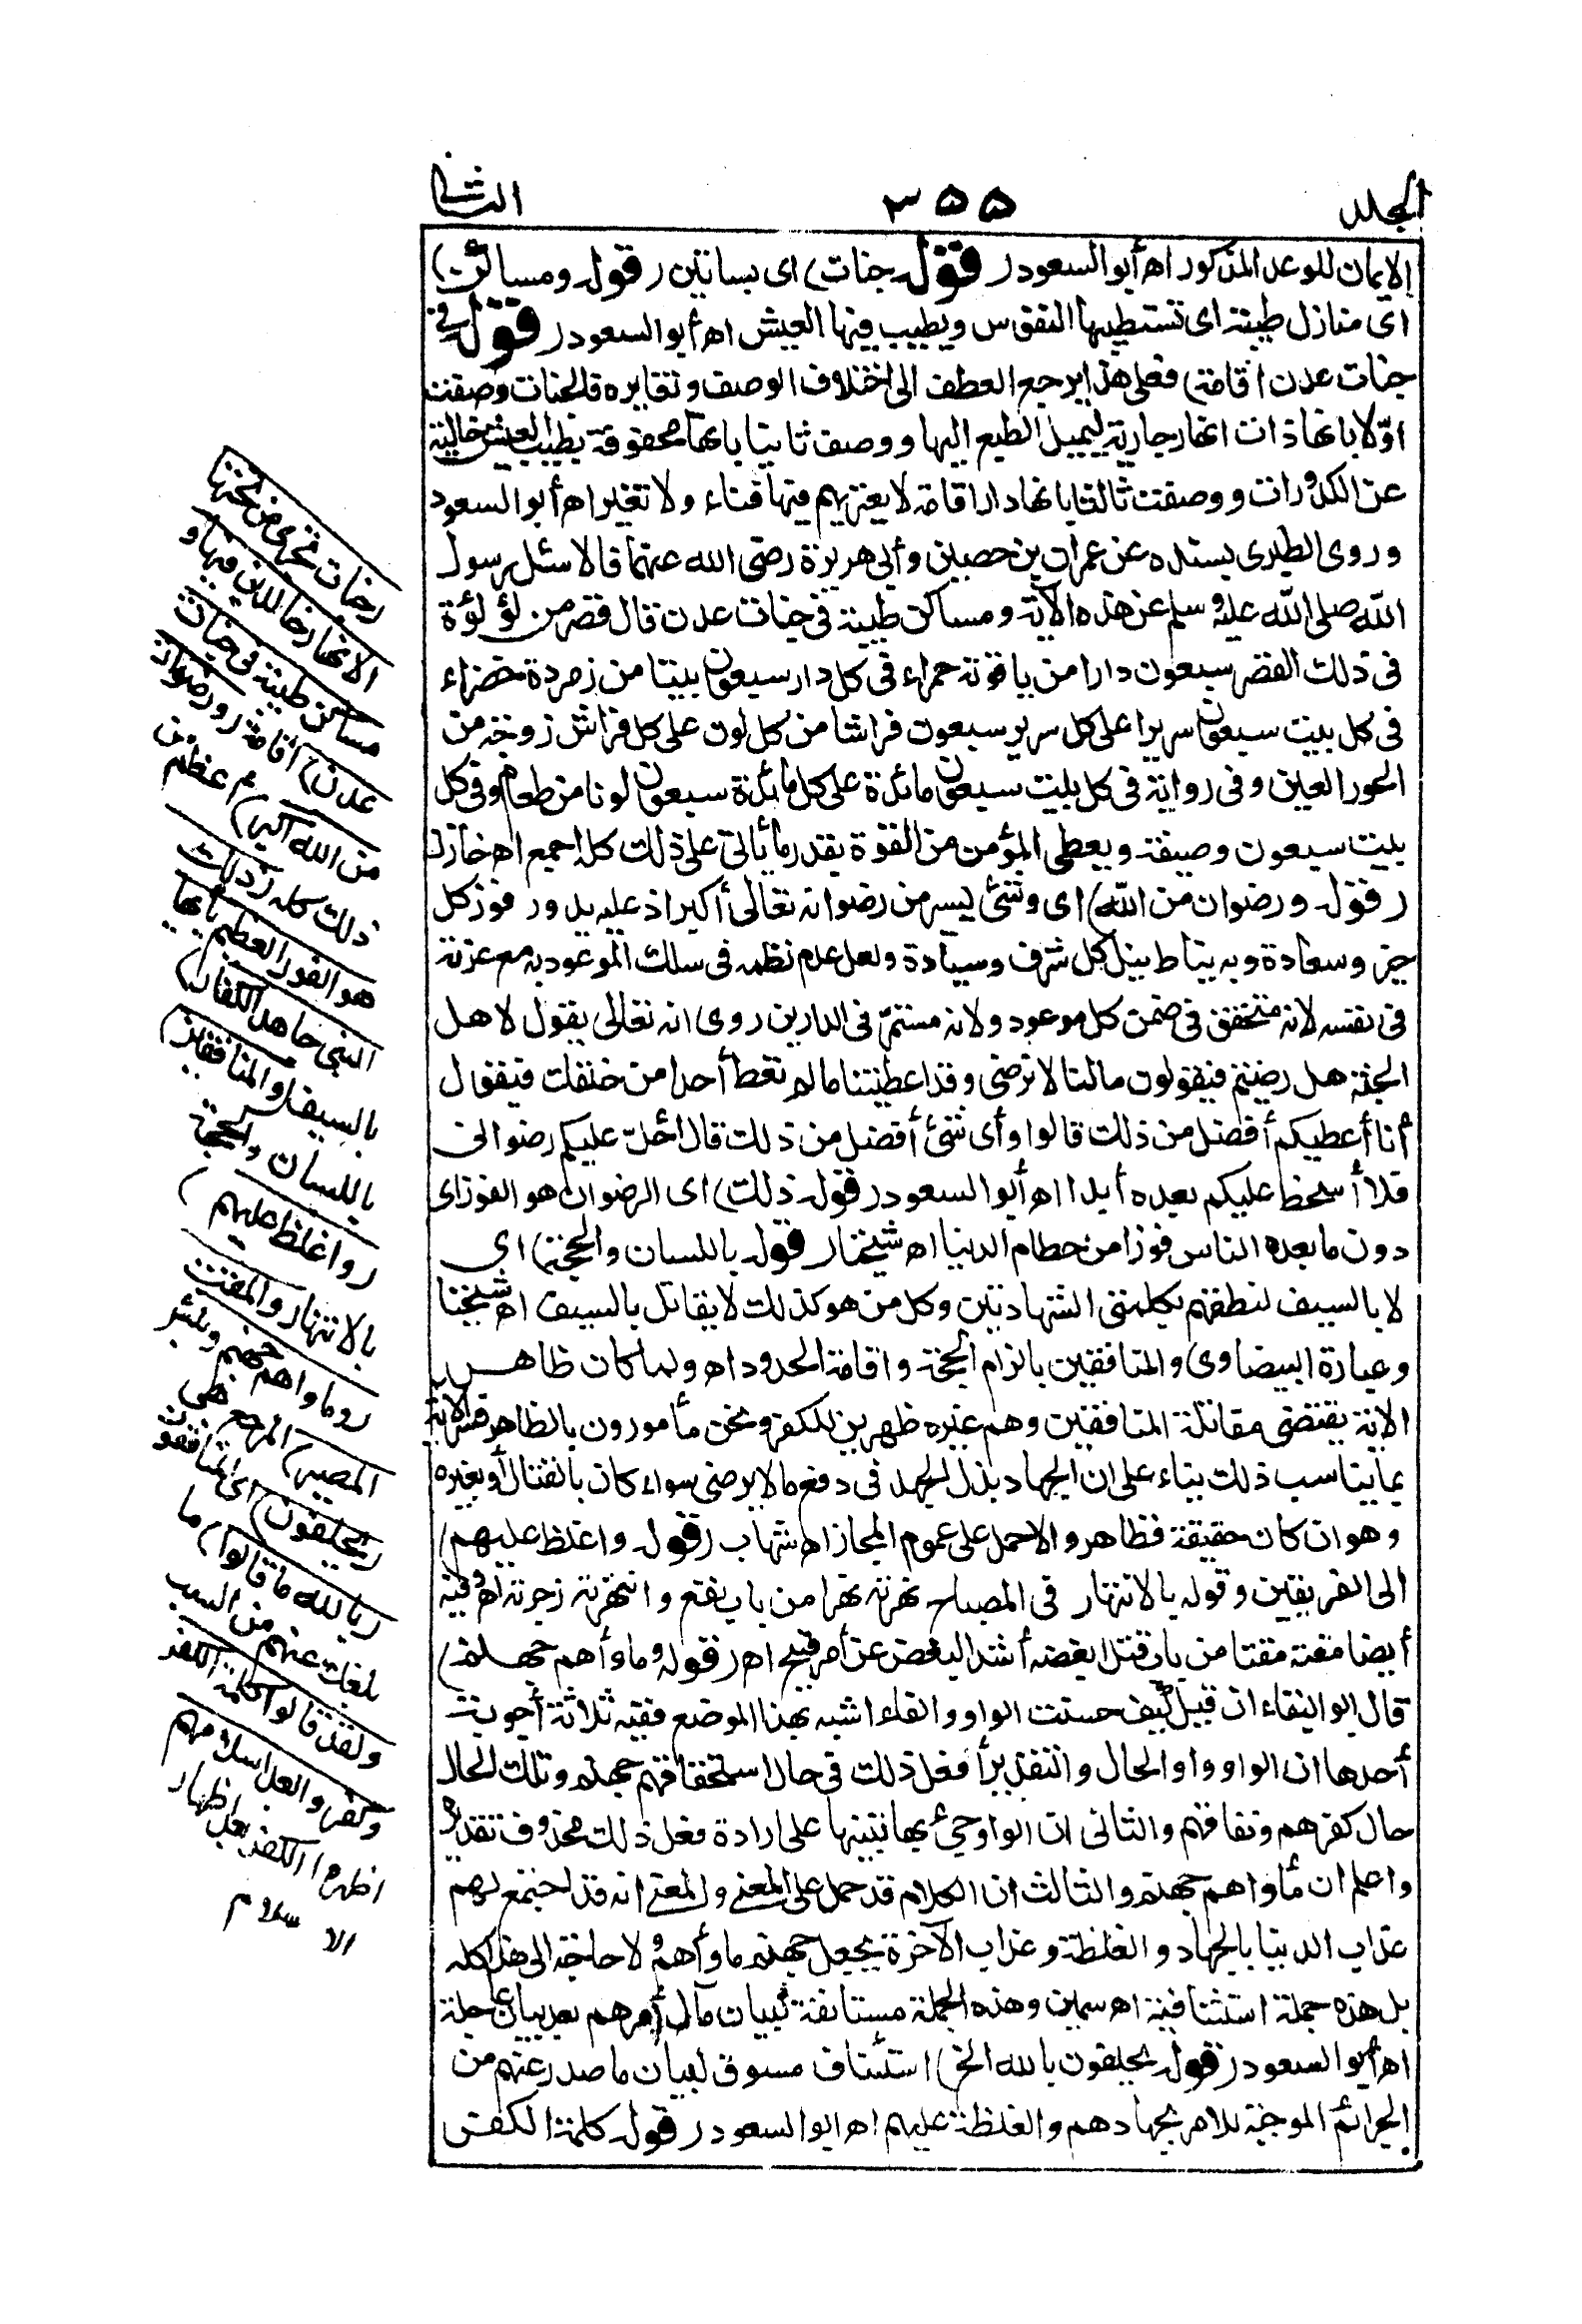 المجلد ٣٥٥ الثاني
الايمان للوعد المذكور اه أبو السعود (قوله جنات) اى بساتين (قوله ومساكن)
اى منازل طيبة اى تستطيبها النفوس ويطيب فيها العيش اه أبو السعود (قوله فى
جنات عدن اقامة) فعلى هذا يرجع العطف الى اختلاف الوصف وتغايره فالجنات وصفت
اوّلا بانها ذات انهار جارية ليميل الطبع اليها ووصف ثانيا بانها محفوفة بطيب العيش خالية
عن الكدورات ووصفت ثالثا بانها دار اقامة لا يعتريهم فيها فناء ولا تغير اه أبو السعود
وروى الطبرى بسنده عن عمران بن حصين وأبى هريرة رضى الله عنهما قالا سئل رسول
الله صلى الله عليه وسلم عن هذه الآية ومساكن طيبة فى جنات عدن قال قصر من لؤلؤة
فى ذلك القصر سبعون دارا من ياقوتة حمراء فى كل دار سبعون بيتا من زمردة خضراء
فى كل بيت سبعون سريرا على كل سرير سبعون فراشا من كل لون على كل فراش زوجة من
الحور العين وفى رواية فى كل بيت سبعون مائدة على كل مائدة سبعون لونا من طعام وفى كل
بيت سبعون وصيفة ويعطى المؤمن من القوة بقدر ما يأتى على ذلك كله اجمع اه خازن
(قوله ورضوان من الله) اى وشئ يسير من رضوانه تعالى أكبر اذ عليه يدور فوز كل
خير وسعادة وبه يناط نيل كل شرف وسيادة ولعل عدم نظمه فى سلك الموعود به مع عزته
فى نفسه لانه متحقق فى ضمن كل موعود ولانه مستمّر فى الدارين روى انه تعالى يقول لاهل
الجنة هل رضيتم فيقولون مالنا لا نرضى وقد اعطيتنا ما لم تعط أحدا من خلقك فيقول
أنا أعطيكم أفضل من ذلك قالوا وأى شئ أفضل من ذلك قال أحلّ عليكم رضوانى
فلا أسخط عليكم بعده أبدا اه أبو السعود (قوله ذلك) اى الرضوان هو الفوز اى
دون ما يعده الناس فوزا من حطام الدنيا اه شيخنا (قوله باللسان والحجة) اى
لا بالسيف لنطقهم بكلمتى الشهادتين وكل من هو كذلك لا يقاتل بالسيف اه شيخنا
وعبارة البيضاوى والمنافقين بالزام الحجة واقامة الحدود اه ولما كان ظاهر
الآية يقتضى مقاتلة المنافقين وهم غير مظهرين للكفر ونحن مأمورون بالظاهر فسر الآية
بما يناسب ذلك بناء على ان الجهاد بذل الجهد فى دفع ما لا يرضى سواء كان بالقتال أو بغيره
وهو ان كان حقيقة فظاهر والا حمل على عموم المجاز اه شهاب (قوله واغلظ عليهم)
الى الفريقين وقوله بالانتهار فى المصباح نهرته نهرا من باب نفع وانتهرته زجرته اه وفيه
أيضا مقته مقتا من باب قتل ابغضه أشد البغض عن أمر قبيح اه (قوله ومأواهم جهنم)
قال ابو البقاء ان قيل كيف حسنت الواو والفاء اشبه بهذا الموضع ففيه ثلاثة أجوبة
أحدها ان الواو واو الحال والتقدير أفعل ذلك فى حال استحقاقهم جهنم وتلك الحال
حال كفرهم ونفاقهم والثانى ان الواو جئ بها تنبيها على ارادة فعل ذلك محذوف تقديره
واعلم ان مأواهم جهنم والثالث ان الكلام قد حمل على المعنى والمعنى انه قد اجتمع لهم
عذاب الدنيا بالجهاد والغلظة وعذاب الآخرة بجعل جهنم مأواهم ولا حاجة الى هذا كله
بل هذه جملة استئنافية اه سمين وهذه الجملة مستانفة لبيان مآل أمرهم بعد بيان عاجله
اه أبو السعود (قوله يحلفون بالله الخ) استئناف مسوق لبيان ما صدر عنهم من
الجرائم الموجبة للامر بجهادهم والغلظة عليهم اه ابو السعود (قوله كلمة الكفر
(جنات تجرى من تحتها
الانهار خالدين فيها و
مساكن طيبة فى جنات
عدن) اقامة (ورضوان
من الله اكبر) اعظم من
ذلك كله (ذلك
هو الفوز العظيم يا ايها
النبى جاهد الكفار)
بالسيف (والمنافقين)
باللسان والحجة
(واغلظ عليهم)
بالانتهار والمقت
(ومأواهم جهنم وبئس
المصير) المرجع هى
(يحلفون) اى المنافقون
(بالله ما قالوا) ما
بلغك عنهم من السب
ولقد قالوا كلمة الكفر
وكفروا بعد اسلامهم
اظهروا الكفر بعد اظهار
الاسلام